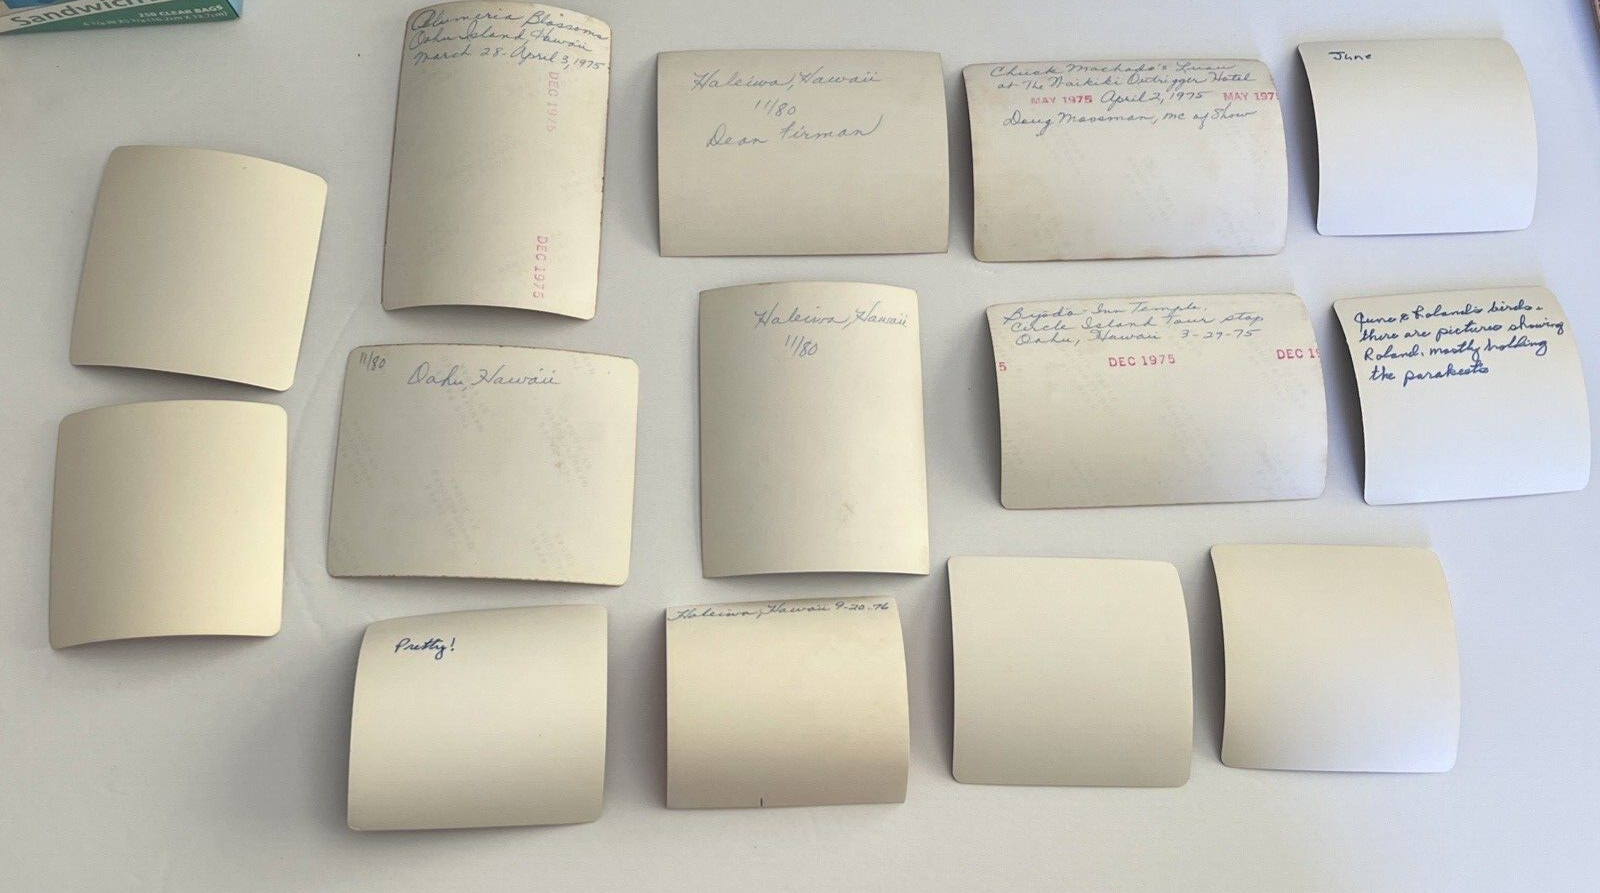 Sandwich
250 CLEAR BAGS
Plumeria Blossoms
Oahu Island, Hawaii
March 28-April 3, 1975
DEC 1975
DEC 1975
Haleiwa, Hawaii
11/80
Dean Firman
Chuck Machado's Luau
at The Waikiki Outrigger Hotel
MAY 1975 April 2, 1975 MAY 197
Doug Mossman, mc of Show
June
11/80
Oahu, Hawaii
Haleiwa, Hawaii
11/80
Byodo Inn Temple,
Circle Island Tour stop
Oahu, Hawaii 3-29-75
5 DEC 1975 DEC 19
June & Roland's birds-
there are pictures showing
Roland, mostly holding
the parakeets
Pretty!
Haleiwa, Hawaii 9-20-76